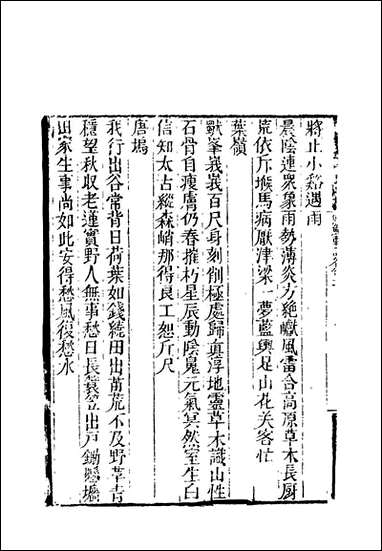 將止小谿遇雨
晨陰連衆象雨勢薄炎方絶巘風雷合高原草木長厨
荒依斥堠馬病厭津梁一夢藍輿足山花笑客忙
葉嶺
獸峯峩峩百尺身刻削極處歸真浮地靈草木識山性
石骨自瘦膚仍春摧朽星辰動陰鬼元氣冥然室生白
信知太古縱森峭那得良工恕斤尺
唐塢
我行出谷常背日荷葉如錢纔田出苗荒不及野草青
穩望秋収老蓮實野人無事愁日長蓑笠出戸鋤壖
田家生事尚如此安得愁風復愁水